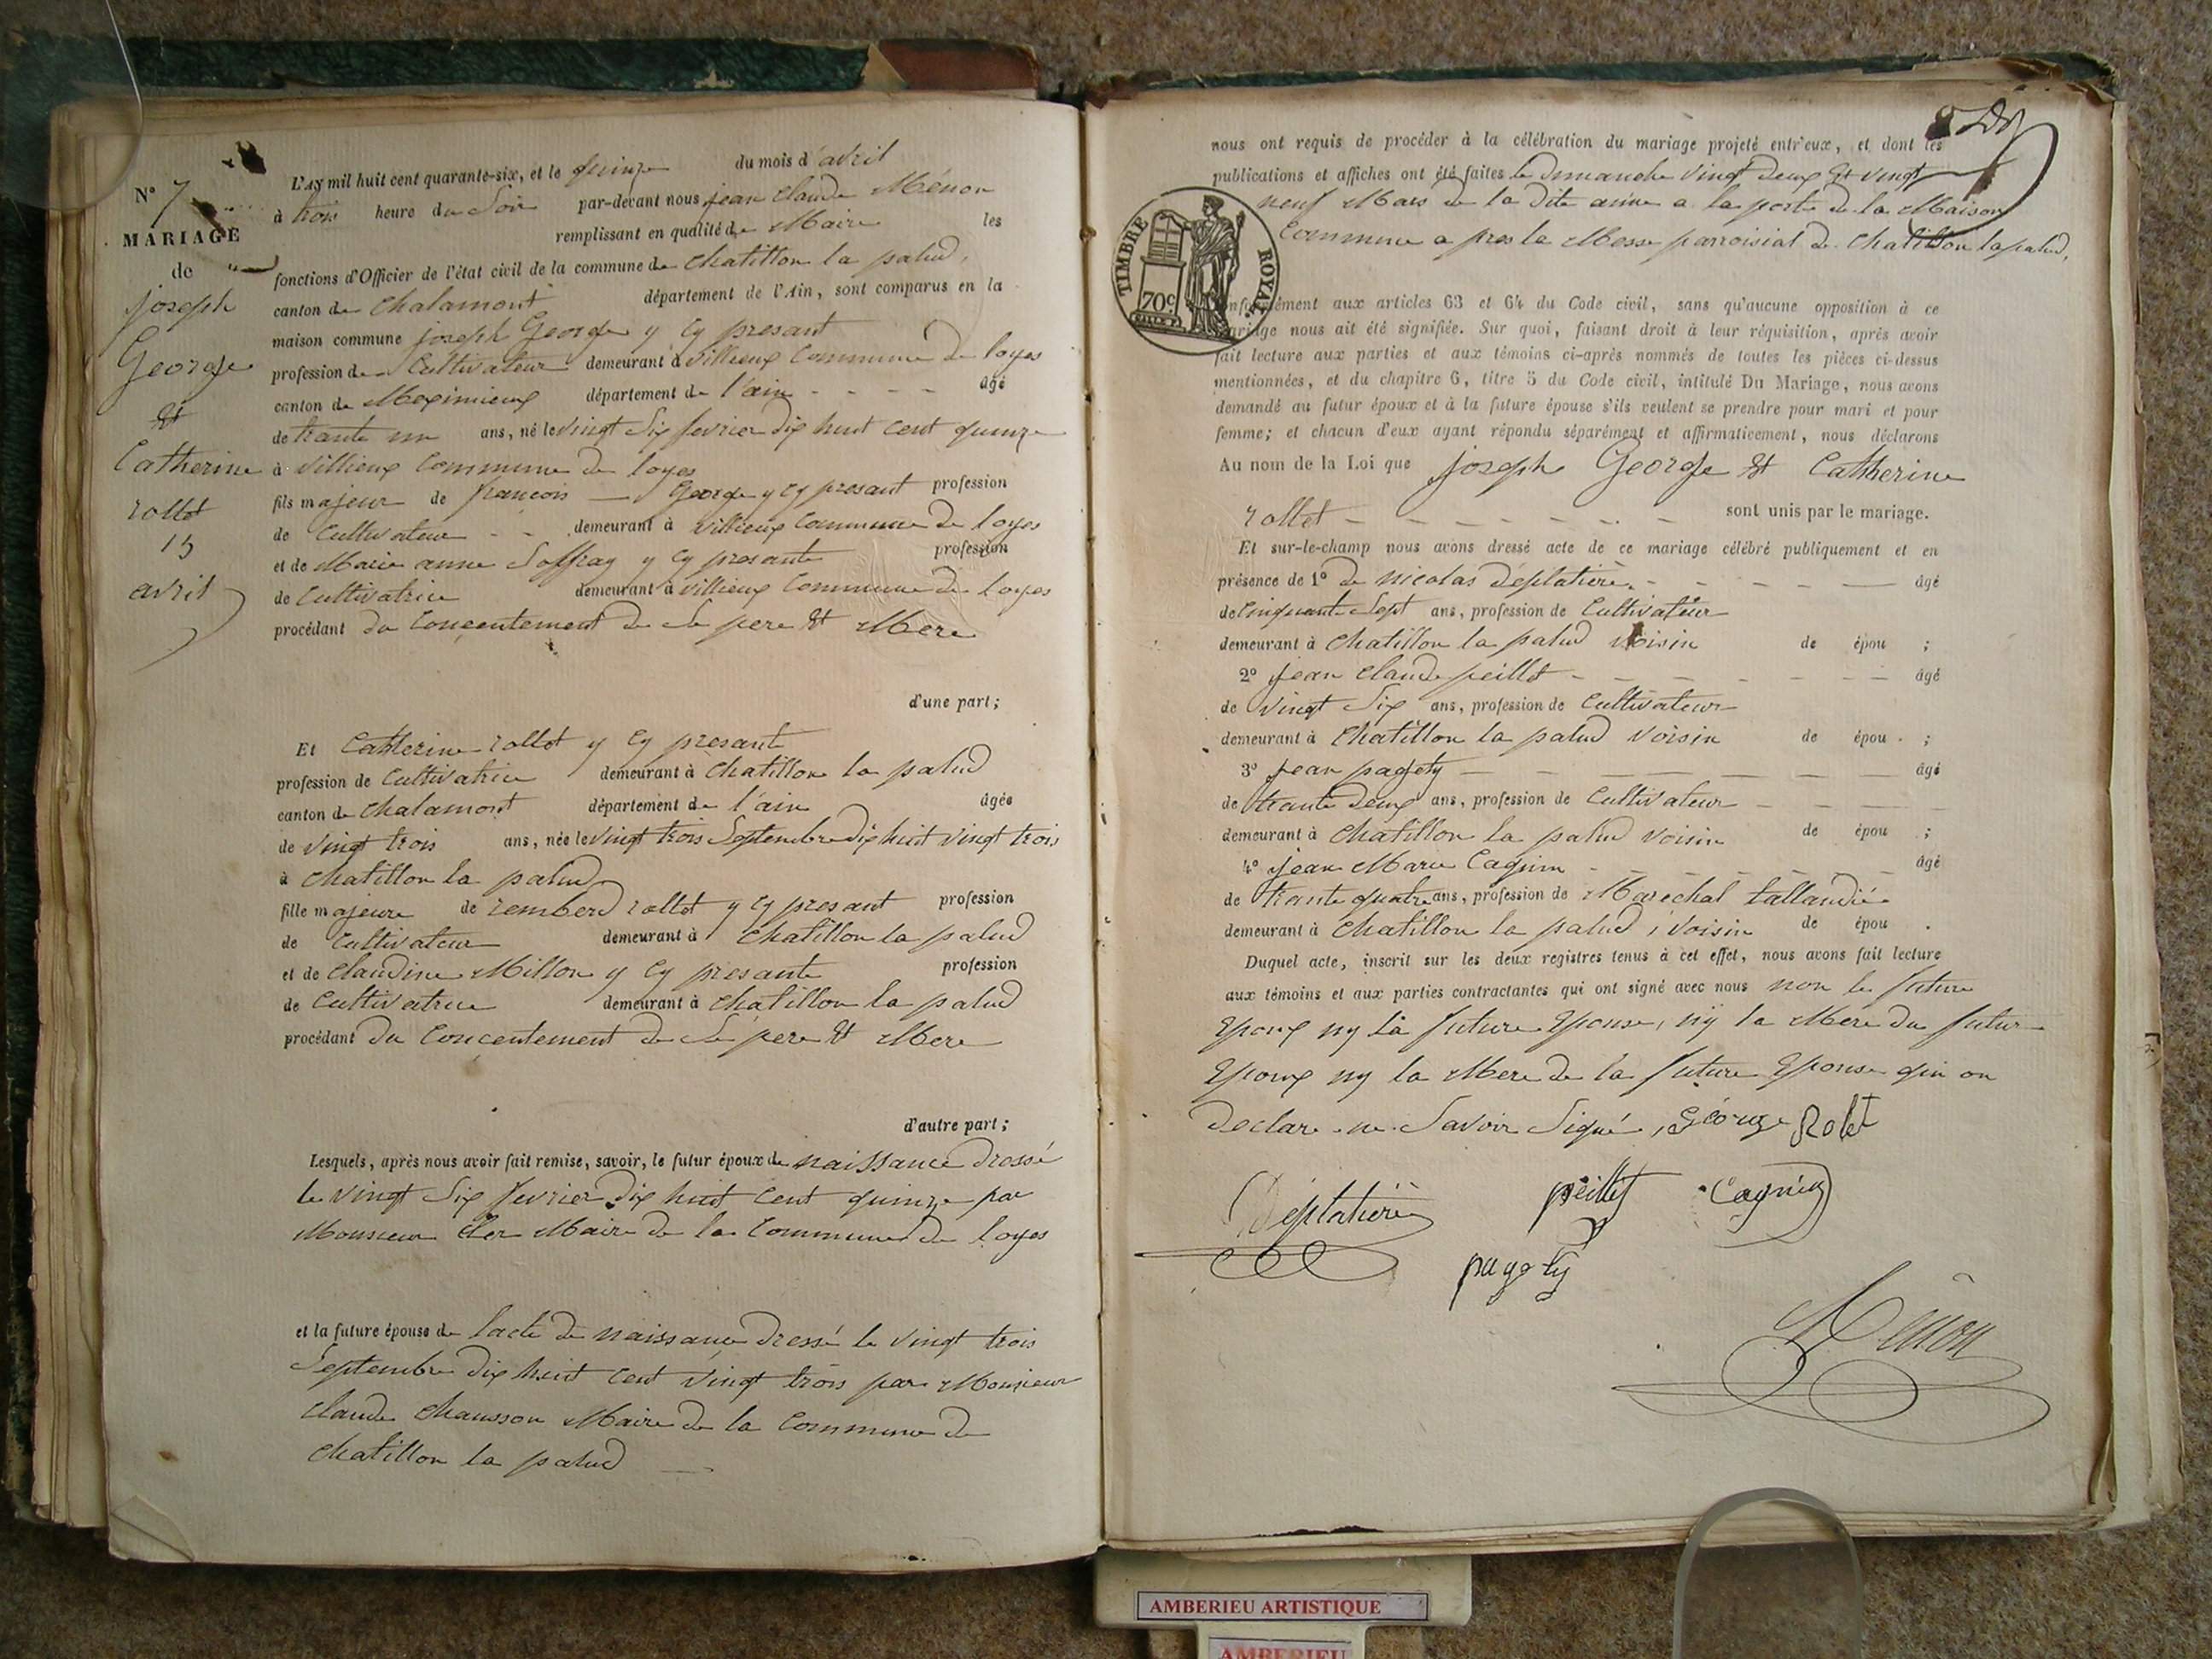 N° 7
MARIAGE
de
joseph
George
Et
Catherine
rollet
15
avril
L'AN mil huit cent quarante-six, et le quinze du mois d'avril
à trois heure du Soir par-devant nous jean claude Ménon
remplissant en qualité de Maire les
fonctions d'Officier de l'état civil de la commune de chatillon la palud,
canton de chalamont département de l'Ain, sont comparus en la
maison commune joseph George y Cy présant
profession de Cultivateur demeurant à villieux Commune de loyes
canton de Meximieux département de l'ain - - - - âgé
de trante un ans, né le vingt Six fevrier dix huit cent quinze
à villieux Commune de loyes
fils majeur de francois — George y Cy présant profession
de Cultivateur - - demeurant à villieux Commune de loyes
et de Marie anne Soffray y Cy présante profession
de Cultivatrice demeurant à villieux Commune de loyes
procédant du Concentement de Se pere Et Mere
d'une part;
Et Catherine rollet y Cy présante
profession de Cultivatrice demeurant à chatillon la palud
canton de chalamont département de l'ain âgée
de vingt trois ans, née le vingt trois Septembre dix huit vingt trois
à chatillon la palud
fille majeure de remberd rollet y Cy présant profession
de Cultivateur demeurant à chatillon la palud
et de claudine Millon y Cy présante profession
de Cultivatrice demeurant à chatillon la palud
procédant du Concentement de Se pere Et Mere
d'autre part;
Lesquels, après nous avoir fait remise, savoir, le futur époux de naissance Dressé
le vingt Six fevrier Dix huit Cent quinze par
Monsieur Maire de la Commune de loyes
et la future épouse de lacte de naissance Dressé le vingt trois
Septembre dix huit Cent vingt trois par Monsieur
claude chausson Maire de la Commune de
chatillon la palud —
nous ont requis de procéder à la célébration du mariage projeté entr'eux, et dont les
publications et affiches ont été faites le dimanche vingt deux Et vingt
neuf Mars de la Dite année a la porte de la Maison
Commune a pres la Messe parroisial de chatillon la palud,
TIMBRE ROYAL
70c
conformément aux articles 63 et 64 du Code civil, sans qu'aucune opposition à ce
mariage nous ait été signifiée. Sur quoi, faisant droit à leur réquisition, après avoir
fait lecture aux parties et aux témoins ci-après nommés de toutes les pièces ci-dessus
mentionnées, et du chapitre 6, titre 5 du Code civil, intitulé Du Mariage, nous avons
demandé au futur époux et à la future épouse s'ils veulent se prendre pour mari et pour
femme; et chacun d'eux ayant répondu séparément et affirmativement, nous déclarons
Au nom de la Loi que joseph George Et Catherine
rollet - - - - - - - sont unis par le mariage.
Et sur-le-champ nous avons dressé acte de ce mariage célébré publiquement et en
présence de 1° de nicolas déplatière - - - - — âgé
de Cinquante Sept ans, profession de Cultivateur
demeurant à chatillon la palud voisin de épou ;
2° jean claude peillet - - - - - - - âgé
de vingt Six ans, profession de Cultivateur
demeurant à chatillon la palud voisin de épou ;
3° jean pagety — — — — — — âgé
de trante deux ans, profession de Cultivateur - - -
demeurant à chatillon la palud voisin de épou ;
4° jean Marie Cagnin - - - - - - âgé
de trante quatre ans, profession de Maréchal tallandié
demeurant à chatillon la palud, voisin de épou .
Duquel acte, inscrit sur les deux registres tenus à cet effet, nous avons fait lecture
aux témoins et aux parties contractantes qui ont signé avec nous non le future
Epoux ny la future Epouse, ny la Mere du futur
Epoux ny la Mere de la future Epouse qui on
Declare ne Savoir Signé, George Rolet
Déplatière peillet Cagnin
pagety
Menon
AMBERIEU ARTISTIQUE
AMBERIEU